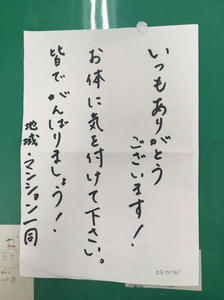 いつもありがとう
ございます!
お体に気を付けて下さい。
皆でがんばりましょう!
地域・マンション一同